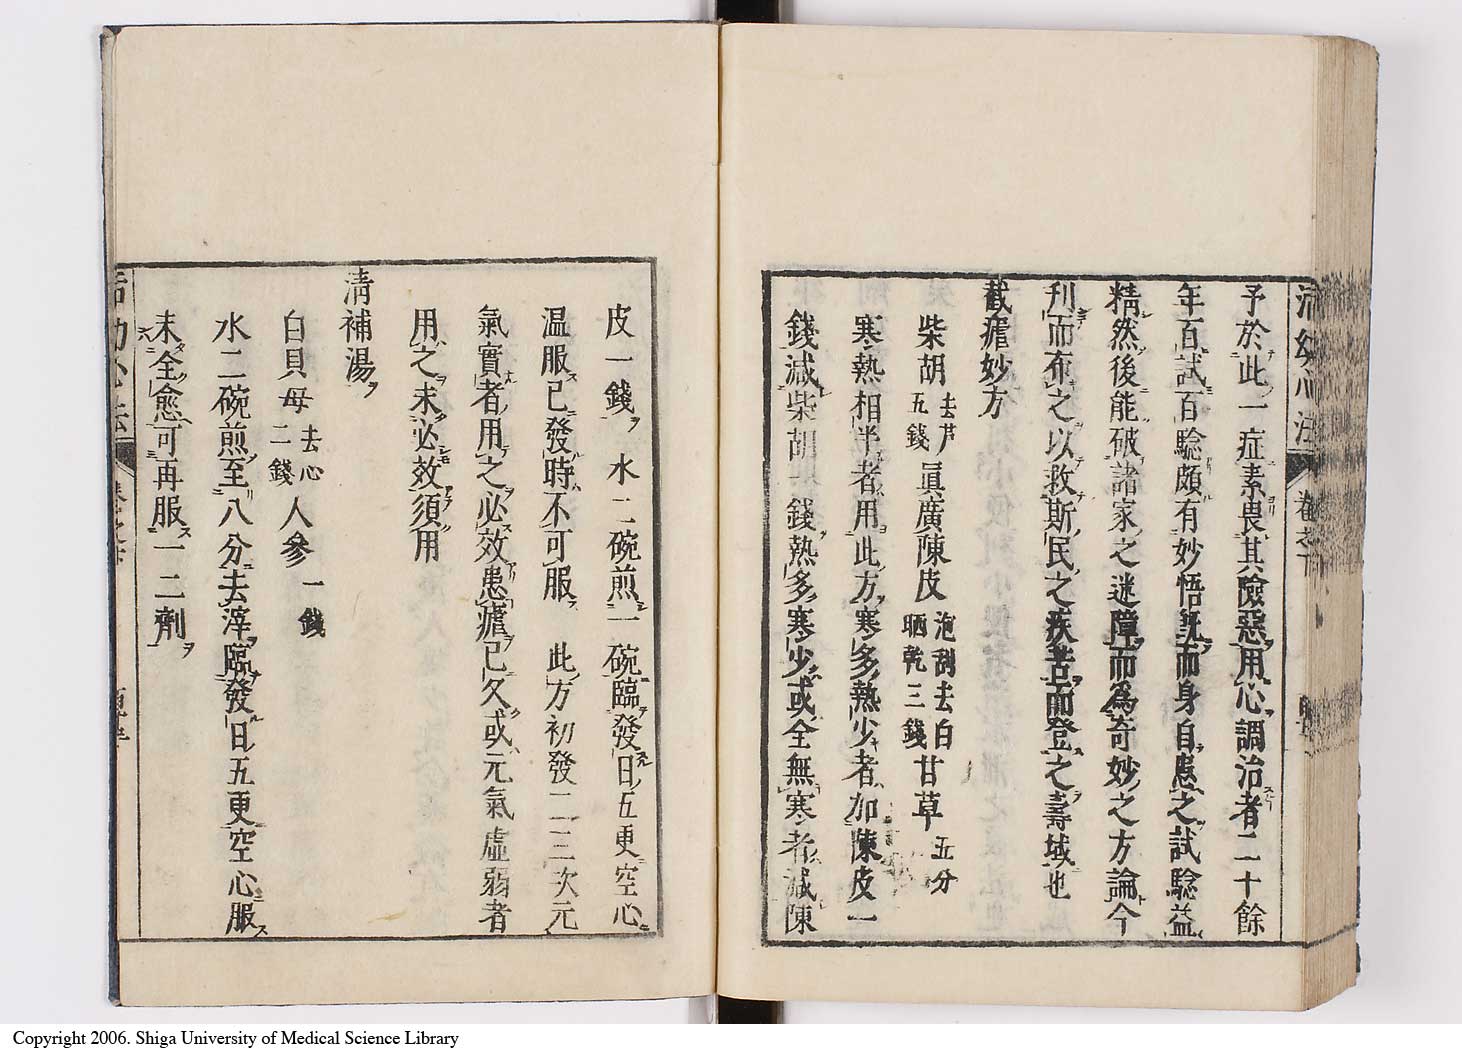 予於此一症素畏其險惡用心調治者二十餘
年百試百驗頗有妙悟既而身自患之試驗益
精然後能破諸家之迷障而為奇妙之方論今
刋而布之以救斯民之疾苦而登之壽域也
截瘧妙方
柴胡去芦五錢眞廣陳皮泡刮去白晒乾三錢甘草五分
寒熱相半者用此方寒多熱少者加陳皮一
錢減柴胡一錢熱多寒少或全無寒者減陳
皮一錢水二碗煎一碗臨發日五更空心
温服已發時不可服 此方初發二三次元
氣實者用之必效患瘧已久或元氣虛弱者
用之未必效須用
清補湯
白貝母去心二錢人參一錢
水二碗煎至八分去滓臨發日五更空心服
未全愈可再服一二劑
活幼心法
Copyright 2006. Shiga University of Medical Science Library